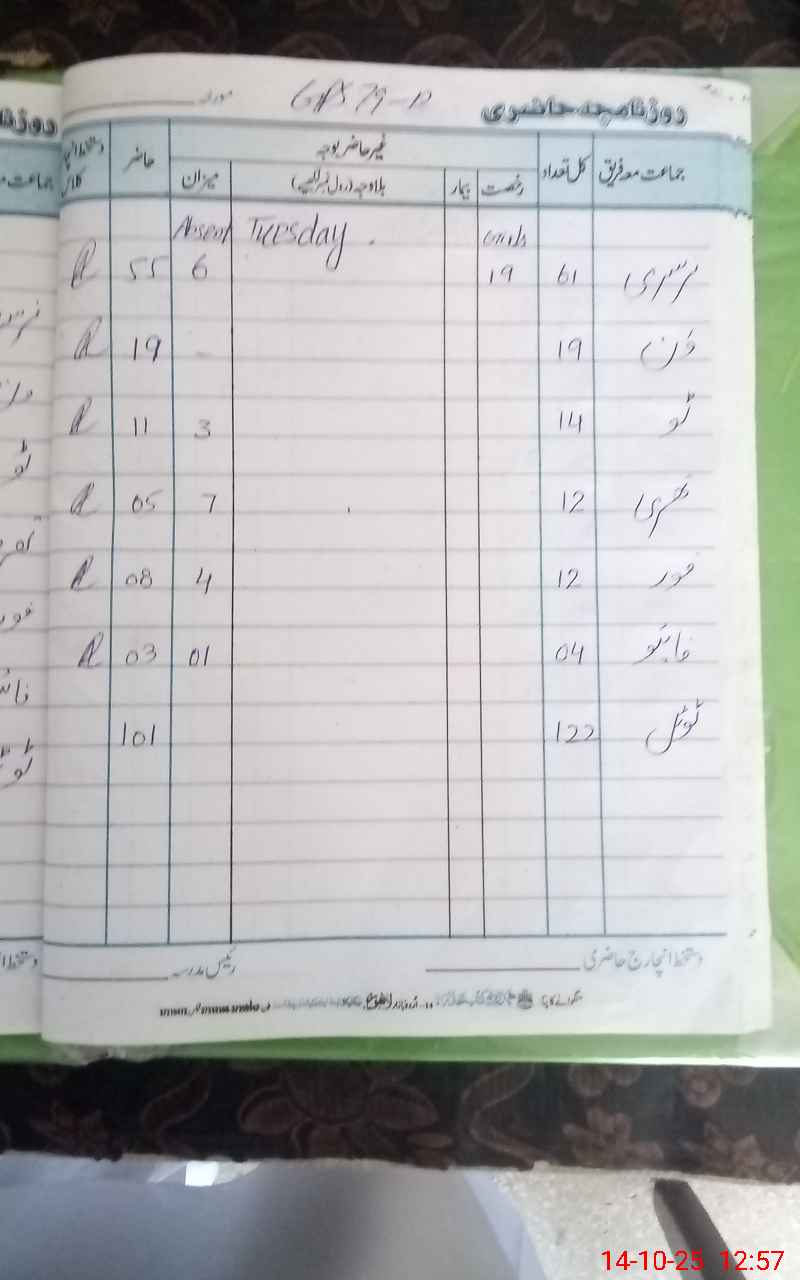 GPS 79-D روزنامچہ حاضری
جماعت معہ فریق کل تعداد غیر حاضر بوجہ حاضر دستخط انچارج کلاس
رخصت بیمار بلاوجہ (رول نمبر لکھیے) میزان
Absent Tuesday. Girls
نرسری 61 19 6 55
ون 19 - 19
ٹو 14 3 11
تھری 12 7 05
فور 12 4 08
فائیو 04 01 03
ٹوٹل 122 101
دستخط انچارج حاضری رئیس مدرسہ
14-10-25 12:57